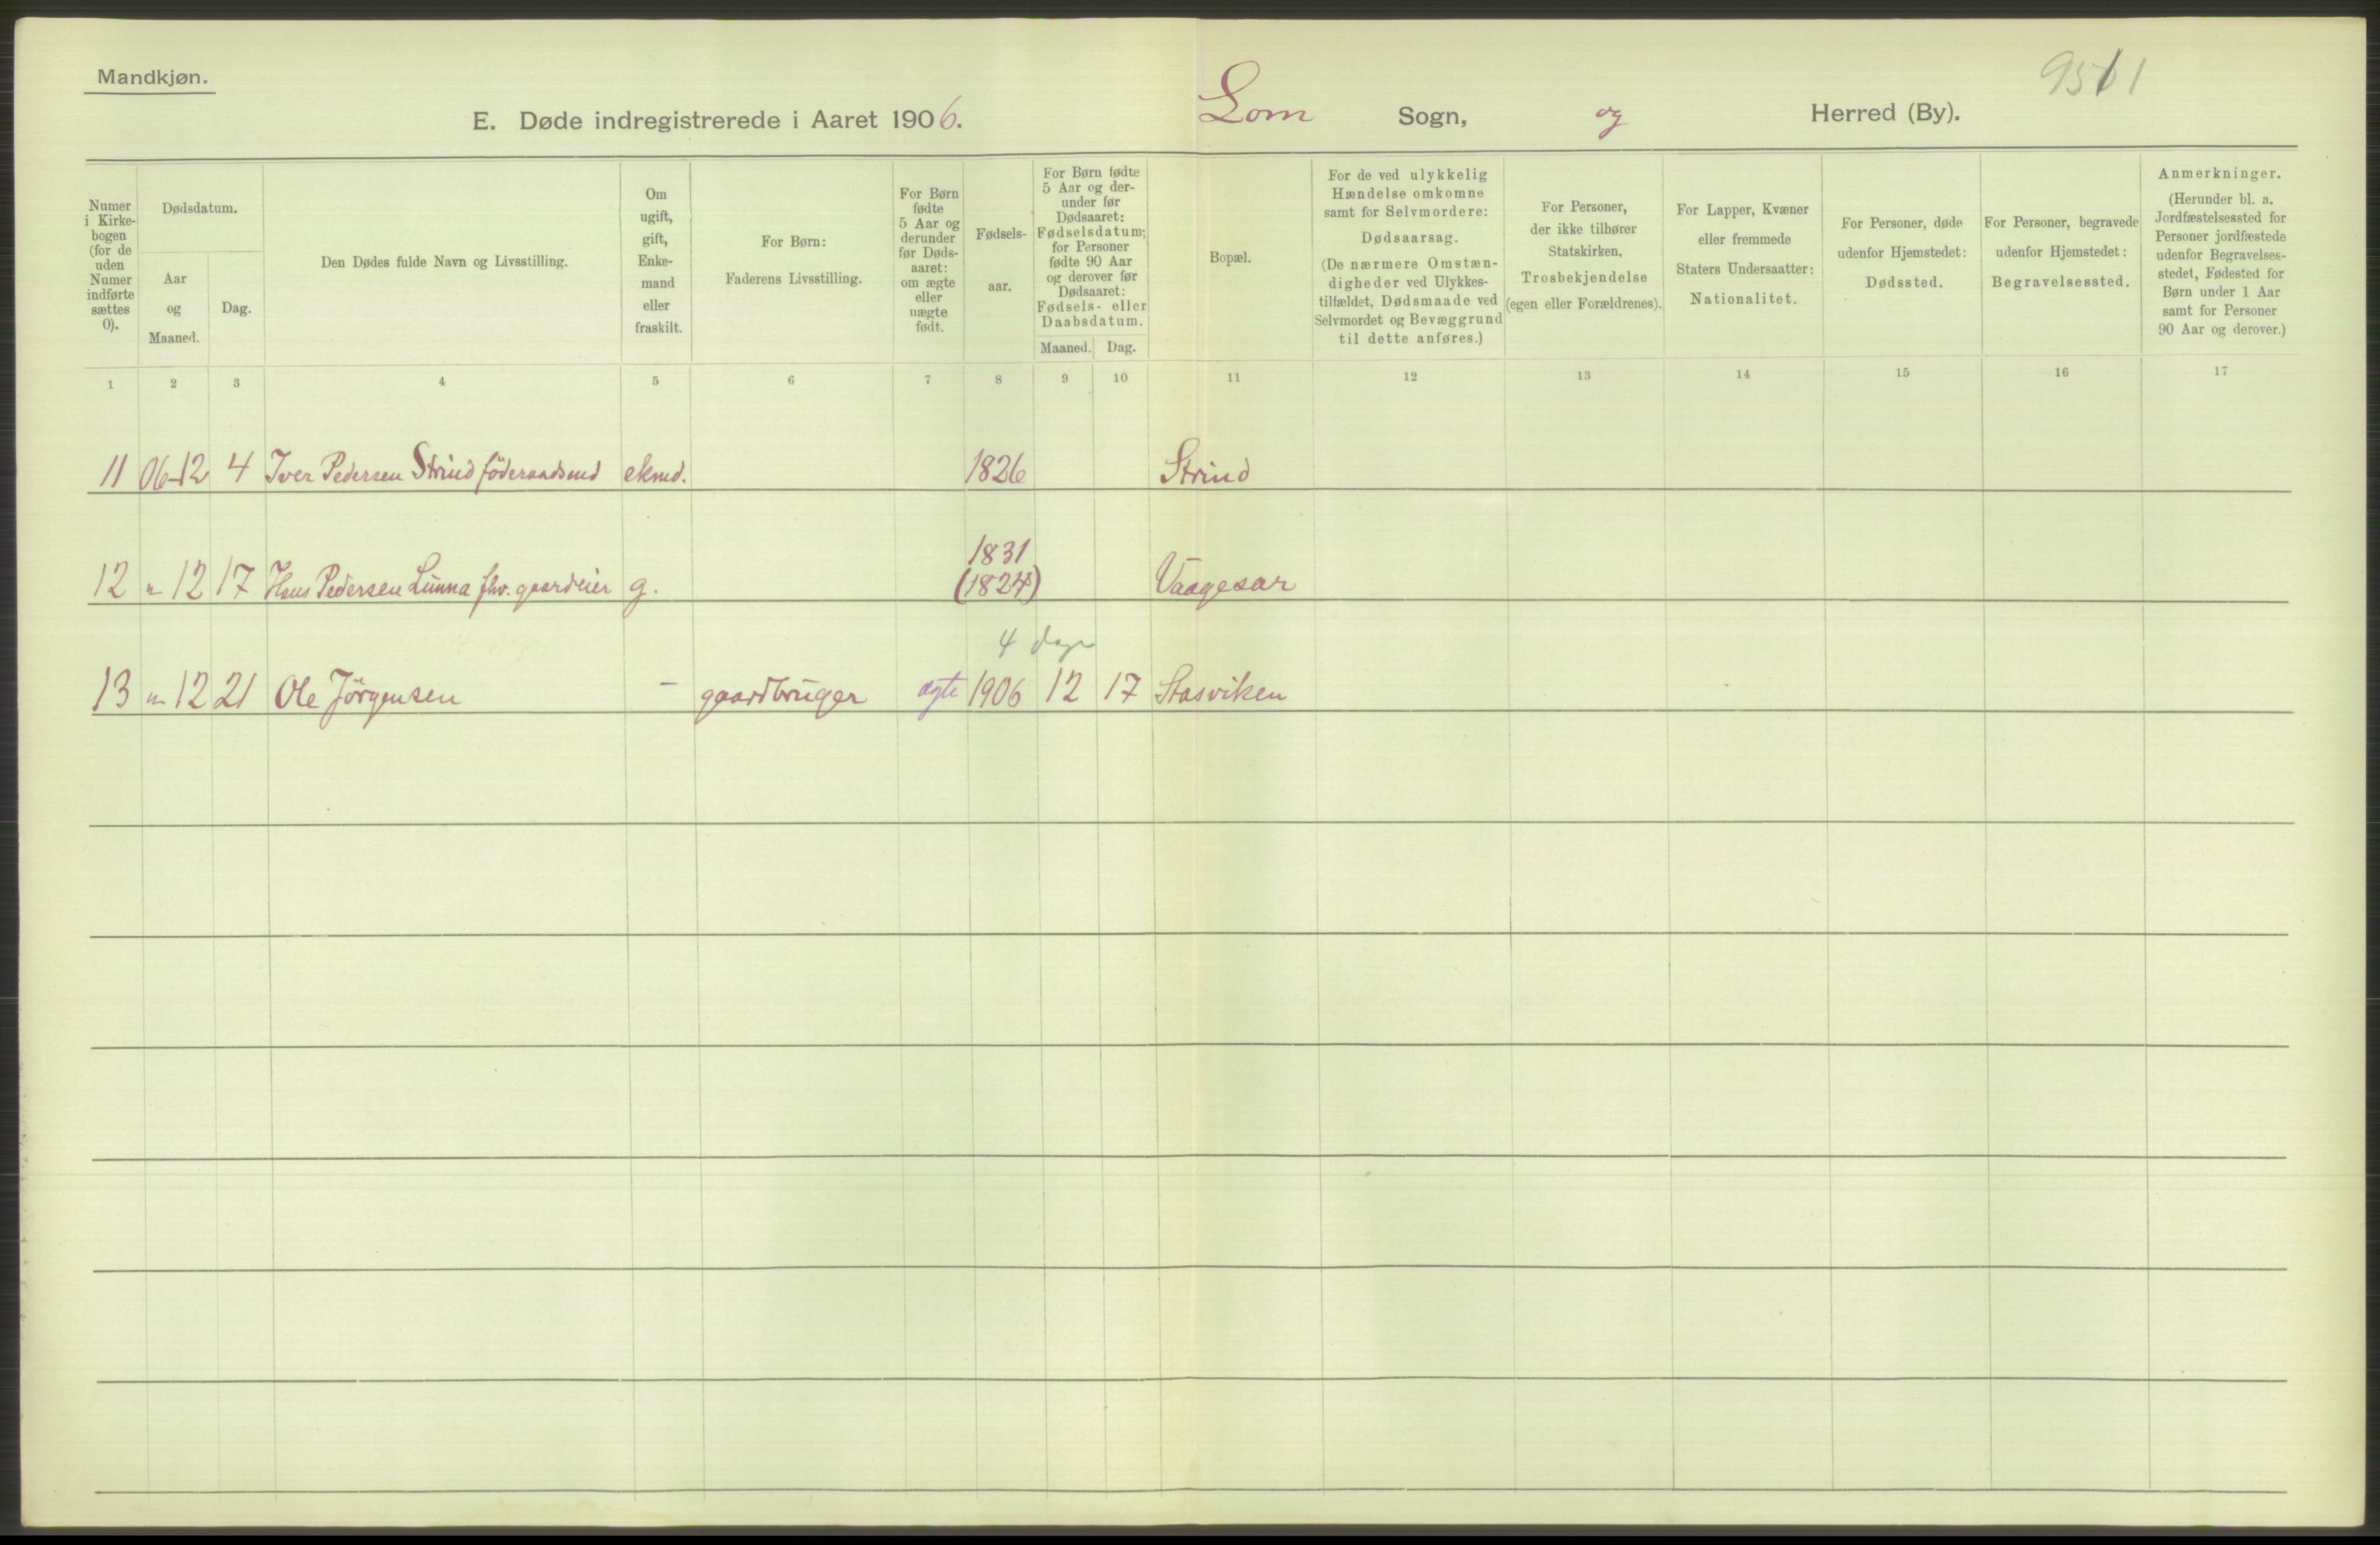 Mandkjøn.
E. Døde indregistrerede i Aaret 1906. Lom Sogn, og Herred (By).
Numer
i Kirke-
bogen
(for de
uden
Numer
indførte
sættes
0).
Dødsdatum.
Aar
og
Maaned.
Dag.
Den Dødes fulde Navn og Livsstilling.
Om
ugift,
gift,
Enke-
mand
eller
fraskilt.
For Børn:
Faderens Livsstilling.
For Børn
fødte
5 Aar og
derunder
før Døds-
aaret:
om ægte
eller
uægte
født.
Fødsels-
aar.
For Børn fødte
5 Aar og der-
under før
Dødsaaret:
Fødselsdatum;
for Personer
fødte 90 Aar
og derover før
Dødsaaret:
Fødsels- eller
Daabsdatum.
Maaned. Dag.
Bopæl.
For de ved ulykkelig
Hændelse omkomne
samt for Selvmordere:
Dødsaarsag.
(De nærmere Omstæn-
digheder ved Ulykkes-
tilfældet, Dødsmaade ved
Selvmordet og Bevæggrund
til dette anføres.)
For Personer,
der ikke tilhører
Statskirken,
Trosbekjendelse
(egen eller Forældrenes).
For Lapper, Kvæner
eller fremmede
Staters Undersaatter:
Nationalitet.
For Personer, døde
udenfor Hjemstedet:
Dødssted.
For Personer, begravede
udenfor Hjemstedet:
Begravelsessted.
Anmerkninger.
(Herunder bl. a.
Jordfæstelsessted for
Personer jordfæstede
udenfor Begravelses-
stedet, Fødested for
Børn under 1 Aar
samt for Personer
90 Aar og derover.)
1 2 3 4 5 6 7 8 9 10 11 12 13 14 15 16 17
11 06-12 4 Iver Pedersen Strind föderaadsmd ekmd. 1826 Strind
1831
12 " 12 17 Hans Pedersen Lunna fhv. gaardeier g. (1824) Vaagesar
4 dage
13 " 12 21 Ole Jörgensen - gaardbruger ægte 1906 12 17 Stasviken